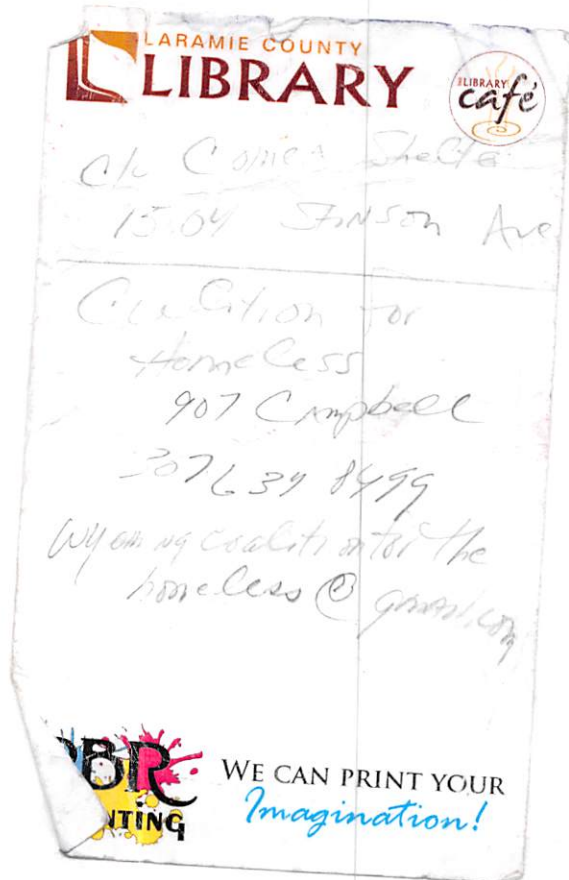 LARAMIE COUNTY
LIBRARY
THE LIBRARY
café
Shelte
Ave
for
Homeless
907 Campbell
307 639 8499
Wyoming coalition for the
homeless @ gmail.com
BR
NTING
WE CAN PRINT YOUR
Imagination!